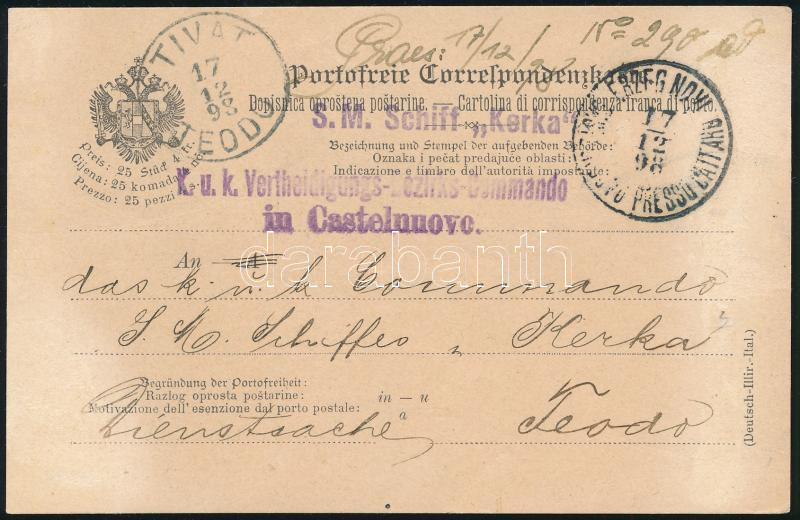 TIVAT
17
12
98
TEODO
Praes: 17/12/98 No 290
Portofreie Correspondenzkarte.
Dopisnica oproštena poštarine. — Cartolina di corrispondenza franca di porto.
S. M. Schiff „Kerka“
ERZEG NOVI
17
12
98
PRESSO CATTARO
Bezeichnung und Stempel der aufgebenden Behörde:
Oznaka i pečat predajuće oblasti:
Indicazione e timbro dell'autorità impostante:
Preis: 25 Stück 4 kr.
Cijena: 25 komada
Prezzo: 25 pezzi
K. u. k. Vertheidigungs-Bezirks-Commando
in Castelnuovo.
An
das k. u. k. Commando
S. M. Schiffes „Kerka“
Begründung der Portofreiheit:
Razlog oprosta poštarine:
Motivazione dell'esenzione dal porto postale:
in — u
a
Dienstsache
Teodo
(Deutsch-Illir.-Ital.)
darabanth